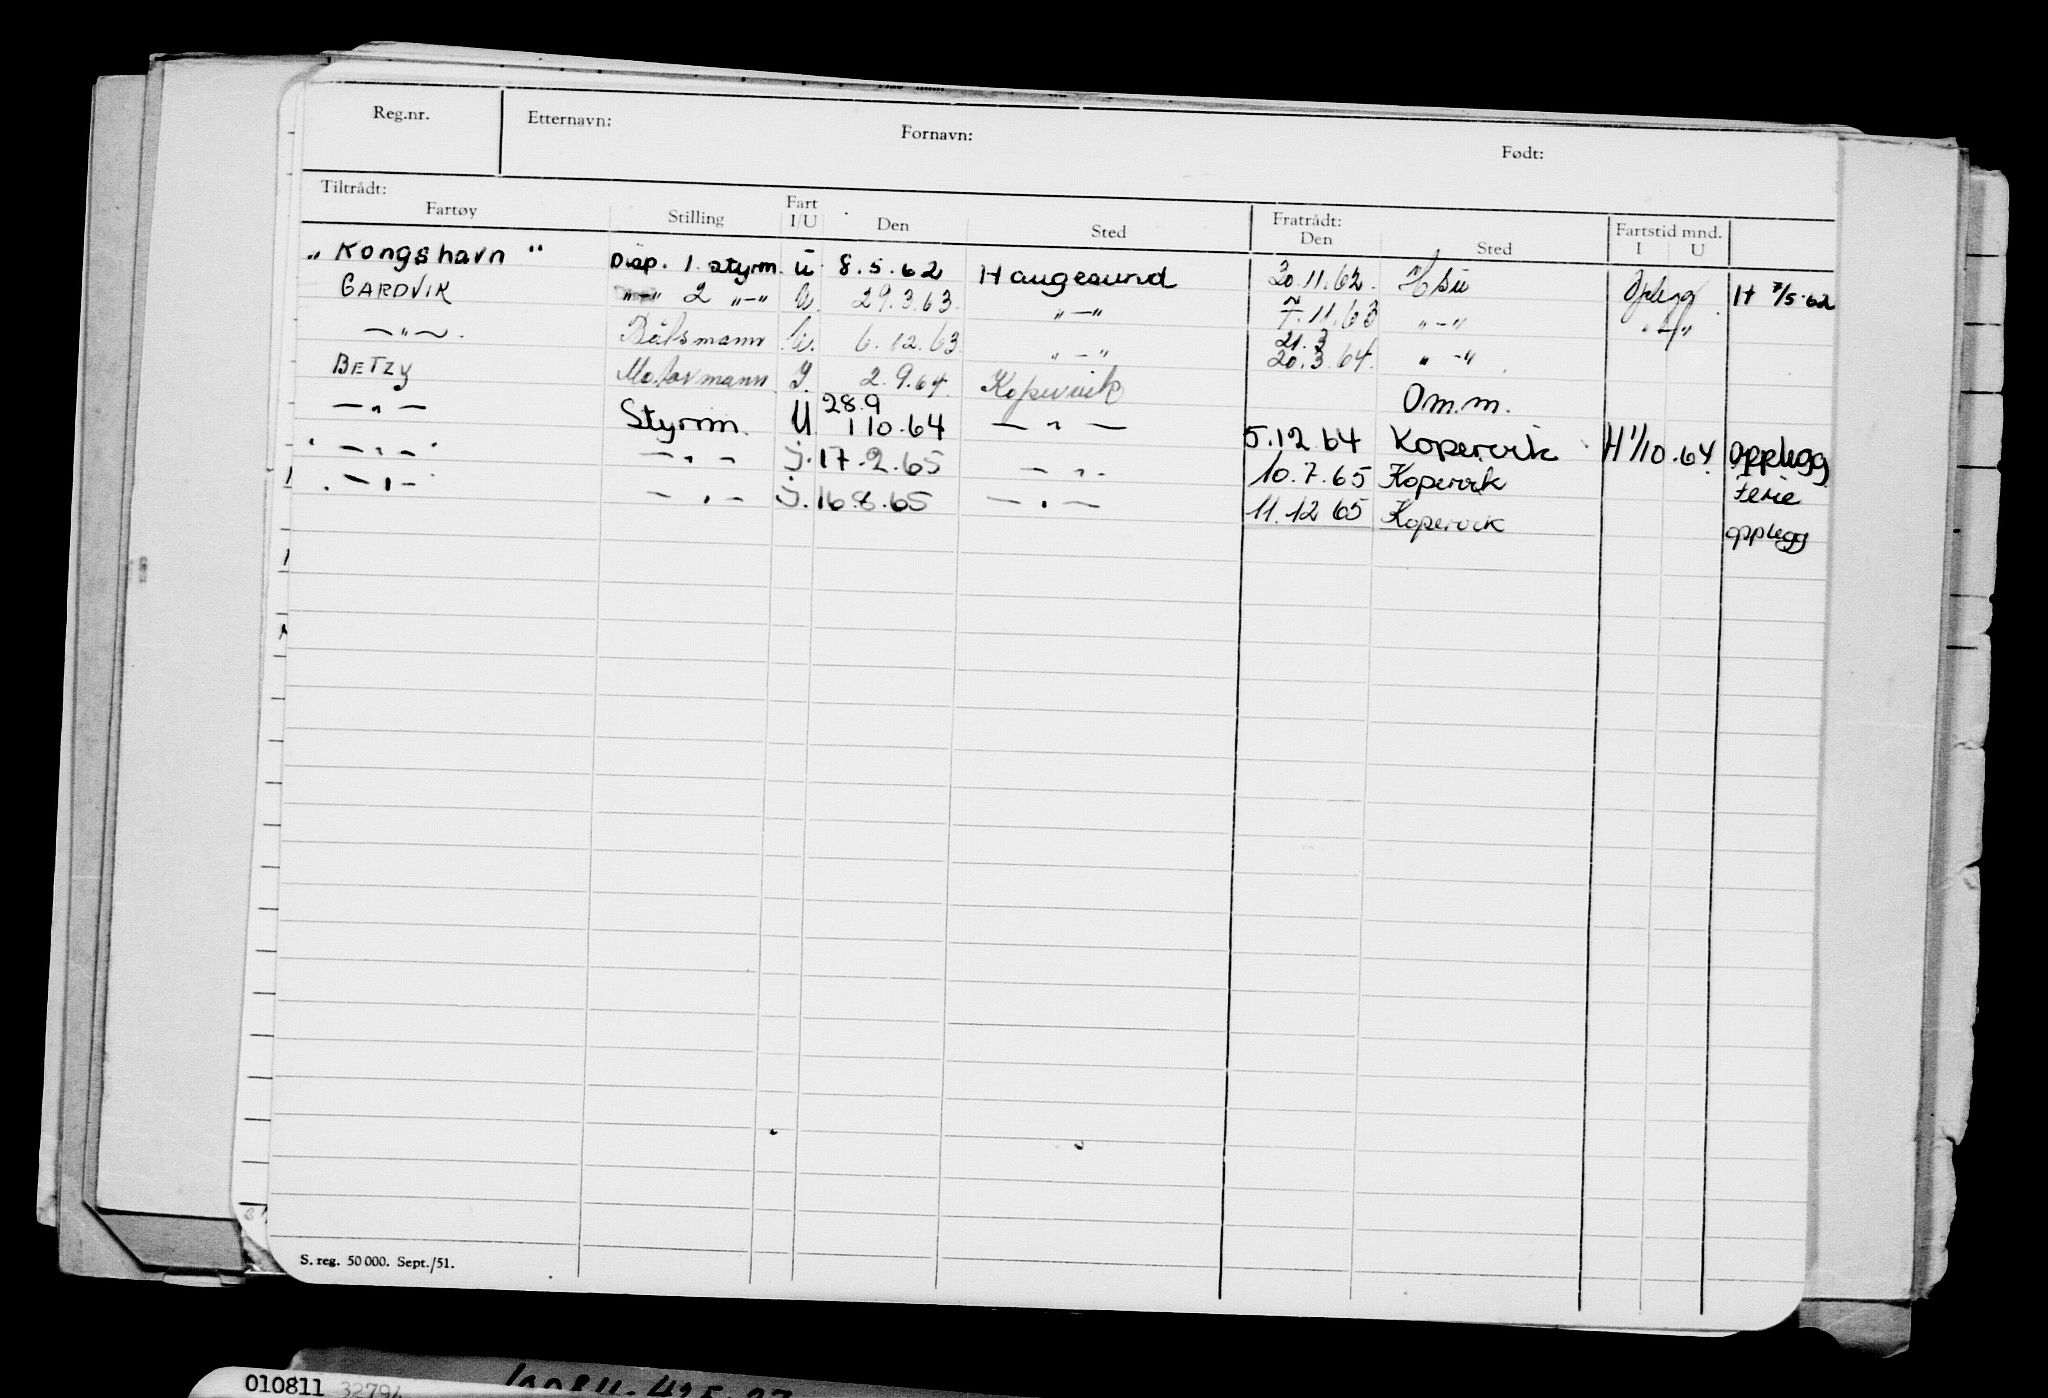 Reg.nr. Etternavn: Fornavn: Født:
Tiltrådt: Fartøy Stilling Fart I/U Den Sted Fratrådt: Den Sted Fartstid mnd. I U
"Kongshavn" Disp. 1. styrm. U 8.5.62 Haugesund 30.11.62. Hsu Opplegg H 7/5.62
GARDVIK "-" 2 "-" U. 29.3.63. "-" 7.11.63 "-" "-"
-"-. Båtsmann U. 6.12.63. "-" 21.3 20.3.64. "-"
BETZY Motormann I. 2.9.64. Kopervik Om.m.
-"- Styrm. U 28.9 1 10.64 -"- 5.12.64 Kopervik H 1/10.64 opplegg
-"- -"- I. 17.2.65 -"- 10.7.65 Kopervik Ferie
-"- -"- I. 16.8.65 -"- 11.12 65 Kopervik opplegg
S. reg. 50 000. Sept./51.
010811 32794